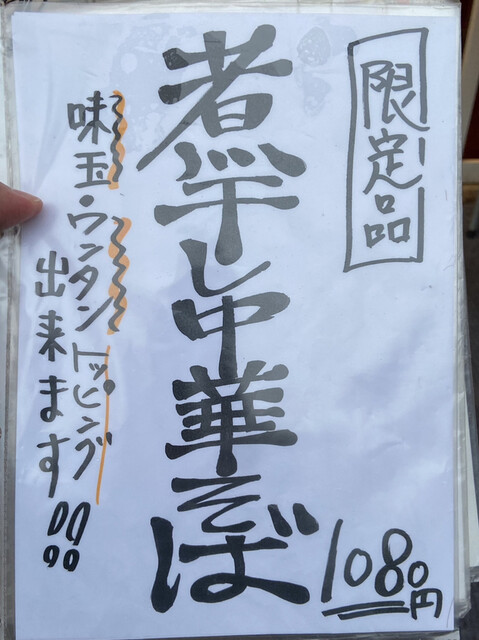 限定品
煮干し中華そば
1080円
味玉・ウンタントッピング
出来ます!!!